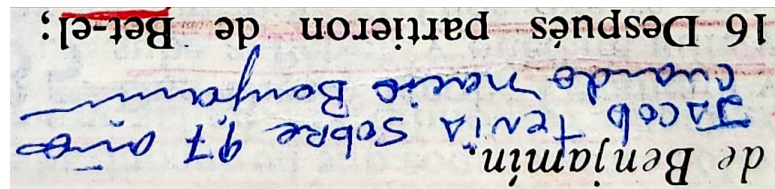 de Benjamín.
Jacob Tenia Sobre 97 años
cuando nacio Benjamin
16 Después partieron de Bet-el;